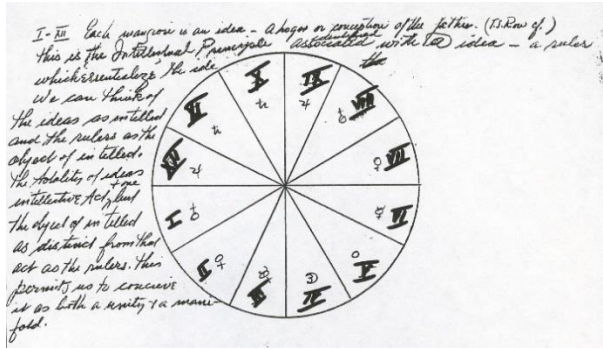 I-XII Each is an idea - A logos or conception of the father. (T.S. Row of.)
This is the Intellectual Principle associated with idea - a ruler
identified
which essentialize the
We can think of
the ideas as intellect
and the rulers as the
object of intellect.
The totality of ideas
+ one
intellective Act, but
the object of intellect
as distinct from that
act as the rulers. This
permits us to conceive
it as both a unity & a mani-
fold.
X
IX
VIII
VII
VI
V
IV
III
II
I
XII
XI